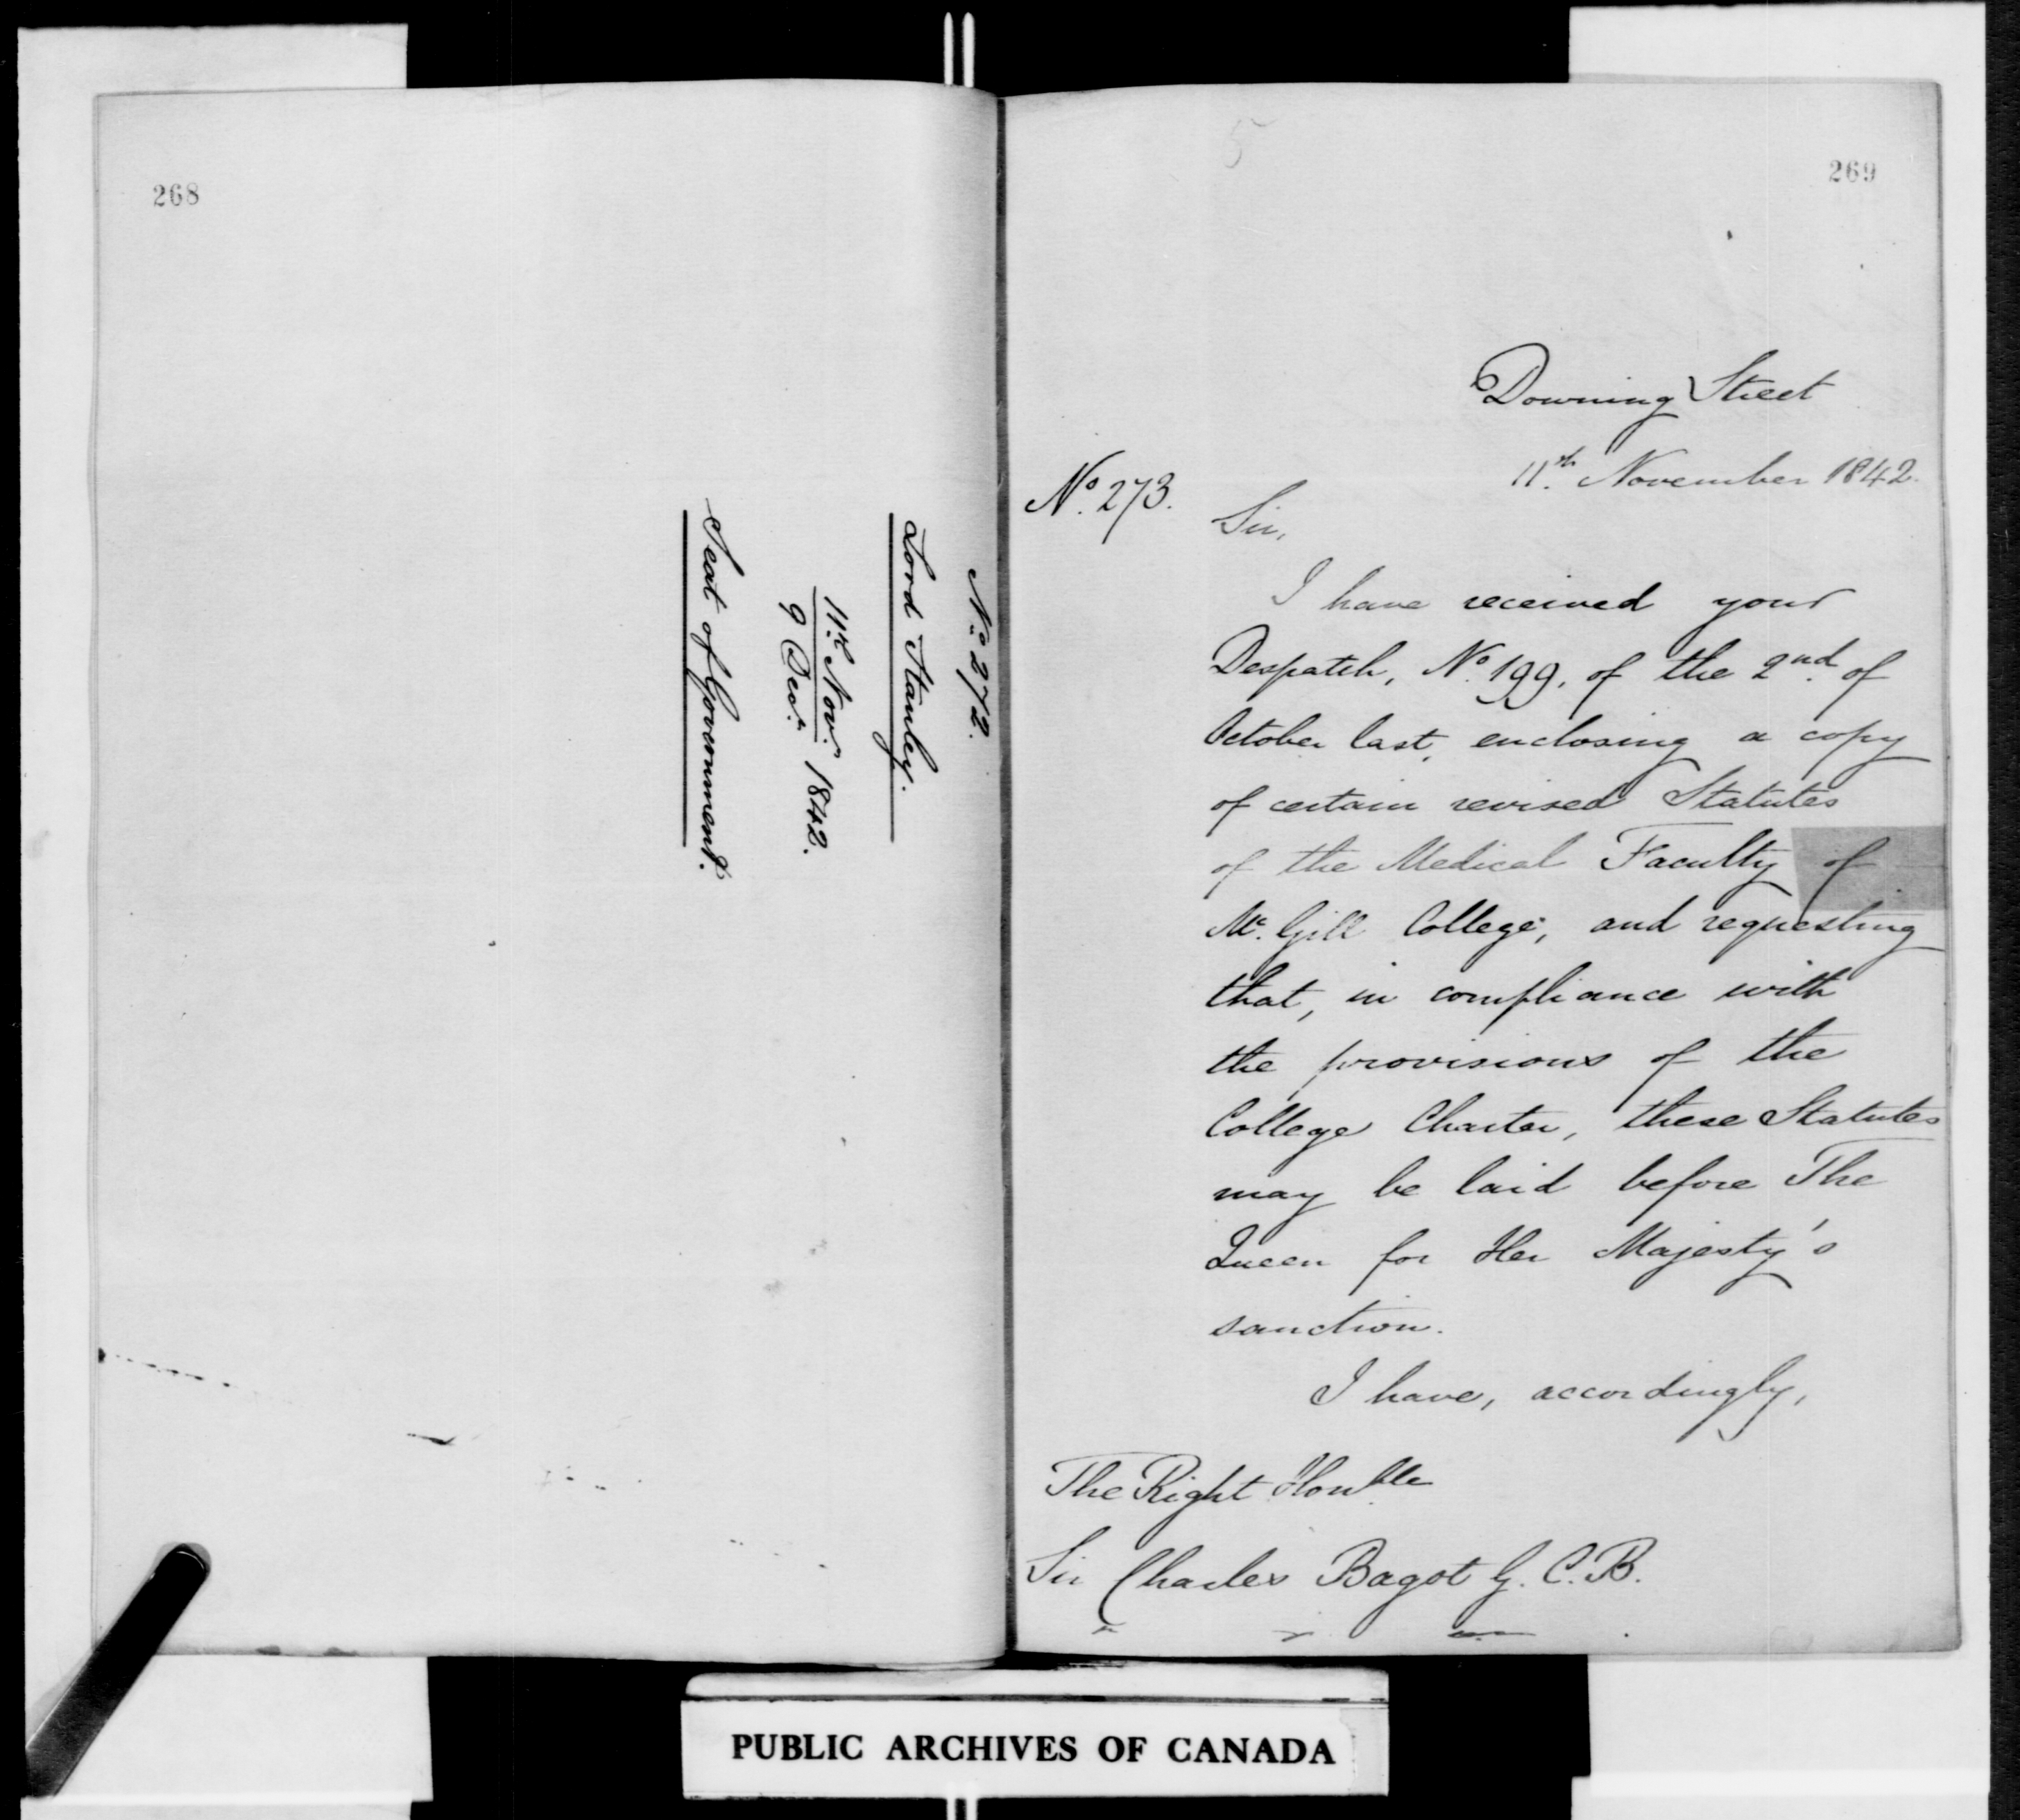 268
No. 272.
Lord Stanley.
11th Novr.
9 Decr. 1842.
Seat of Government.
5
269
Downing Street
11th. November 1842.
No. 273.
Sir,
I have received your
Despatch, No. 199, of the 2nd. of
October last, enclosing a copy
of certain revised Statutes
of the Medical Faculty of
Mc. Gill College, and requesting
that, in compliance with
the provisions of the
College Charter, these Statutes
may be laid before The
Queen for Her Majesty's
sanction.
I have, accordingly,
The Right Honble
Sir Charles Bagot G. C. B.
PUBLIC ARCHIVES OF CANADA